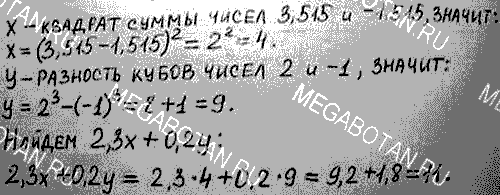 X – КВАДРАТ СУММЫ ЧИСЕЛ 3,515 и -1,515, ЗНАЧИТ:
X = (3,515-1,515)² = 2² = 4.
У – РАЗНОСТЬ КУБОВ ЧИСЕЛ 2 и -1, ЗНАЧИТ:
У = 2³-(-1)³ = 8 + 1 = 9.
НАЙДЕМ 2,3х + 0,2у:
2,3х + 0,2у = 2,3·4 + 0,2·9 = 9,2 + 1,8 = 11.
MEGABOTAN.RU